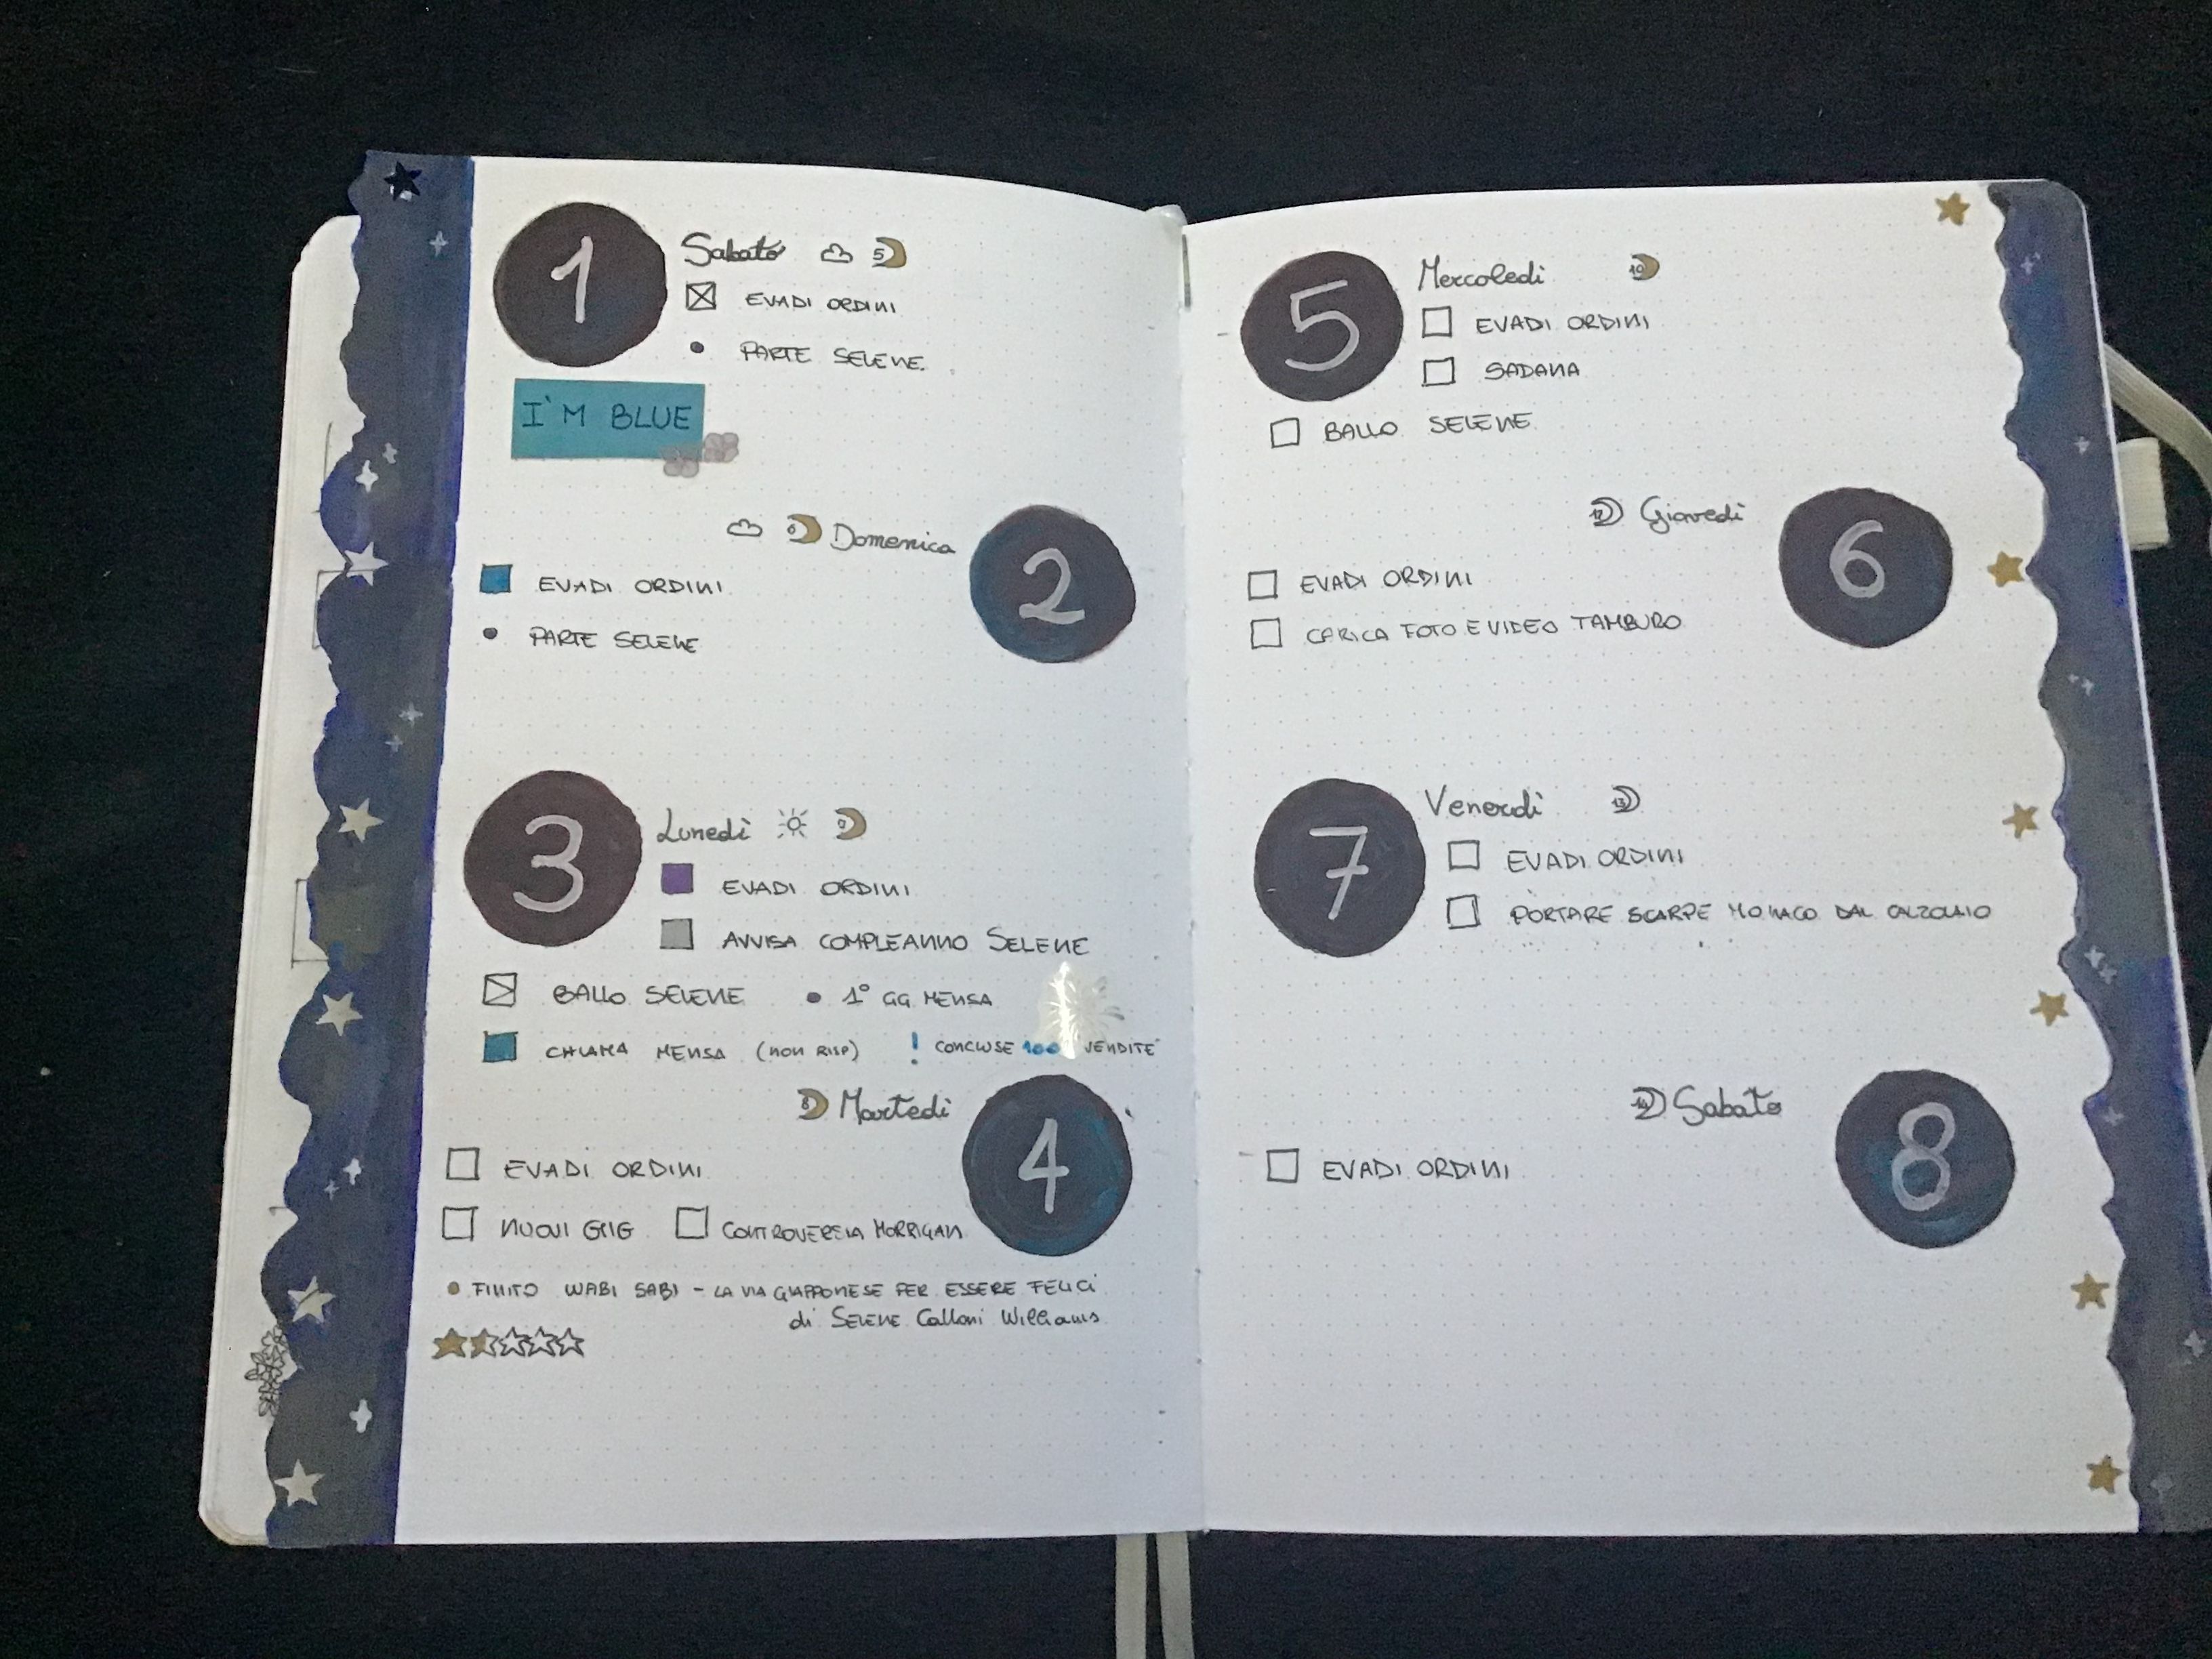 1
Sabato 5
EVADI ORDINI
PARTE SELENE
I'M BLUE
6 Domenica
2
EVADI ORDINI
PARTE SELENE
3
Lunedì
EVADI ORDINI
AVVISA COMPLEANNO SELENE
BALLO SELENE 1° GG MENSA
CHIAMA MENSA (NON RISP) ! CONCLUSE VENDITE
8 Martedì
4
EVADI ORDINI
NUOVI CONTROVERSIA MORRIGAN
FINITO WABI SABI - LA VIA GIAPPONESE PER ESSERE FELICI
di SELENE Calloni Williams
5
Mercoledì 10
EVADI ORDINI
SADANA
BALLO SELENE
12 Giovedì
6
EVADI ORDINI
CARICA FOTO E VIDEO TAMBURO
7
Venerdì 13
EVADI ORDINI
PORTARE SCARPE MONACO DAL CALZOLAIO
14 Sabato
8
EVADI ORDINI